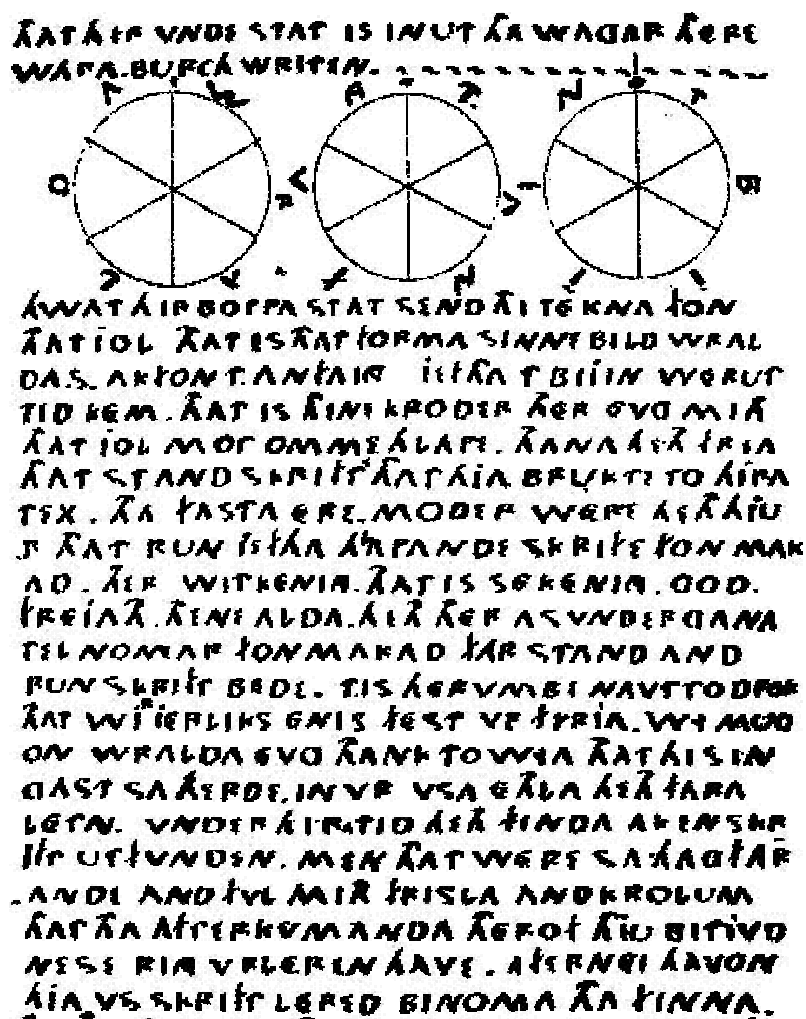 THAT HIR VNDE STAT IS IN UT THA WAGAR THERE
WARA.BURCH WRITEN.
HWAT HIR BOPPA STAT SEND THI TEKNA FON
THAT JOL THAT IS THAT FORMA SINNEBILD WRAL
DAS. AK FON T.ANFANG JEFTHA T BIJIN WERUT
TID KEM. THAT IS THENE KRODER THER EVG MITH
THAT JOL MOT OMMEHLAPE. THANA HETH FRIA
THAT STANDSKRIFT THAT HIA BRUKTE TO HIRA
TEX. THA FASTA ERE.MODER WERE HETH HIU
R THAT RUN JEFTHA HLAPANDE SKRIFT FON MAK
AD. THER WITKENING. THAT IS SEKENING. GOD.
FREIATH. THENE ALDA. HETH THER ASVNDERGANA
TELNOMAR FON MAKAD FAR STAND AND
RUNSKRIFT BEDE. TIS HERVMBE NAVT TO DROK
THAT WI R IERLIKS ENIS FEST VR FYRIA. WI MUG
ON WRALDA EVG THANK TO WIA THAT HI SIN
GAST SA HERDE. IN VR VSA ETHLA HETH FARA
LETN. VNDER HIR TID HETH FINDA AK EN SKR
IFT UTFVNDEN. MEN THAT WERE SA HAGFAR
.ANDE AND FVL MITH FRISLA AND KROLUM
THAT THA AFTERKVMANDA THEROF THIU BITIVD
NESE RING VRLEREN HAVE. AFTERNEI HAVON
HIA VS SKRIFT LERED BINOMA THA FINNA.